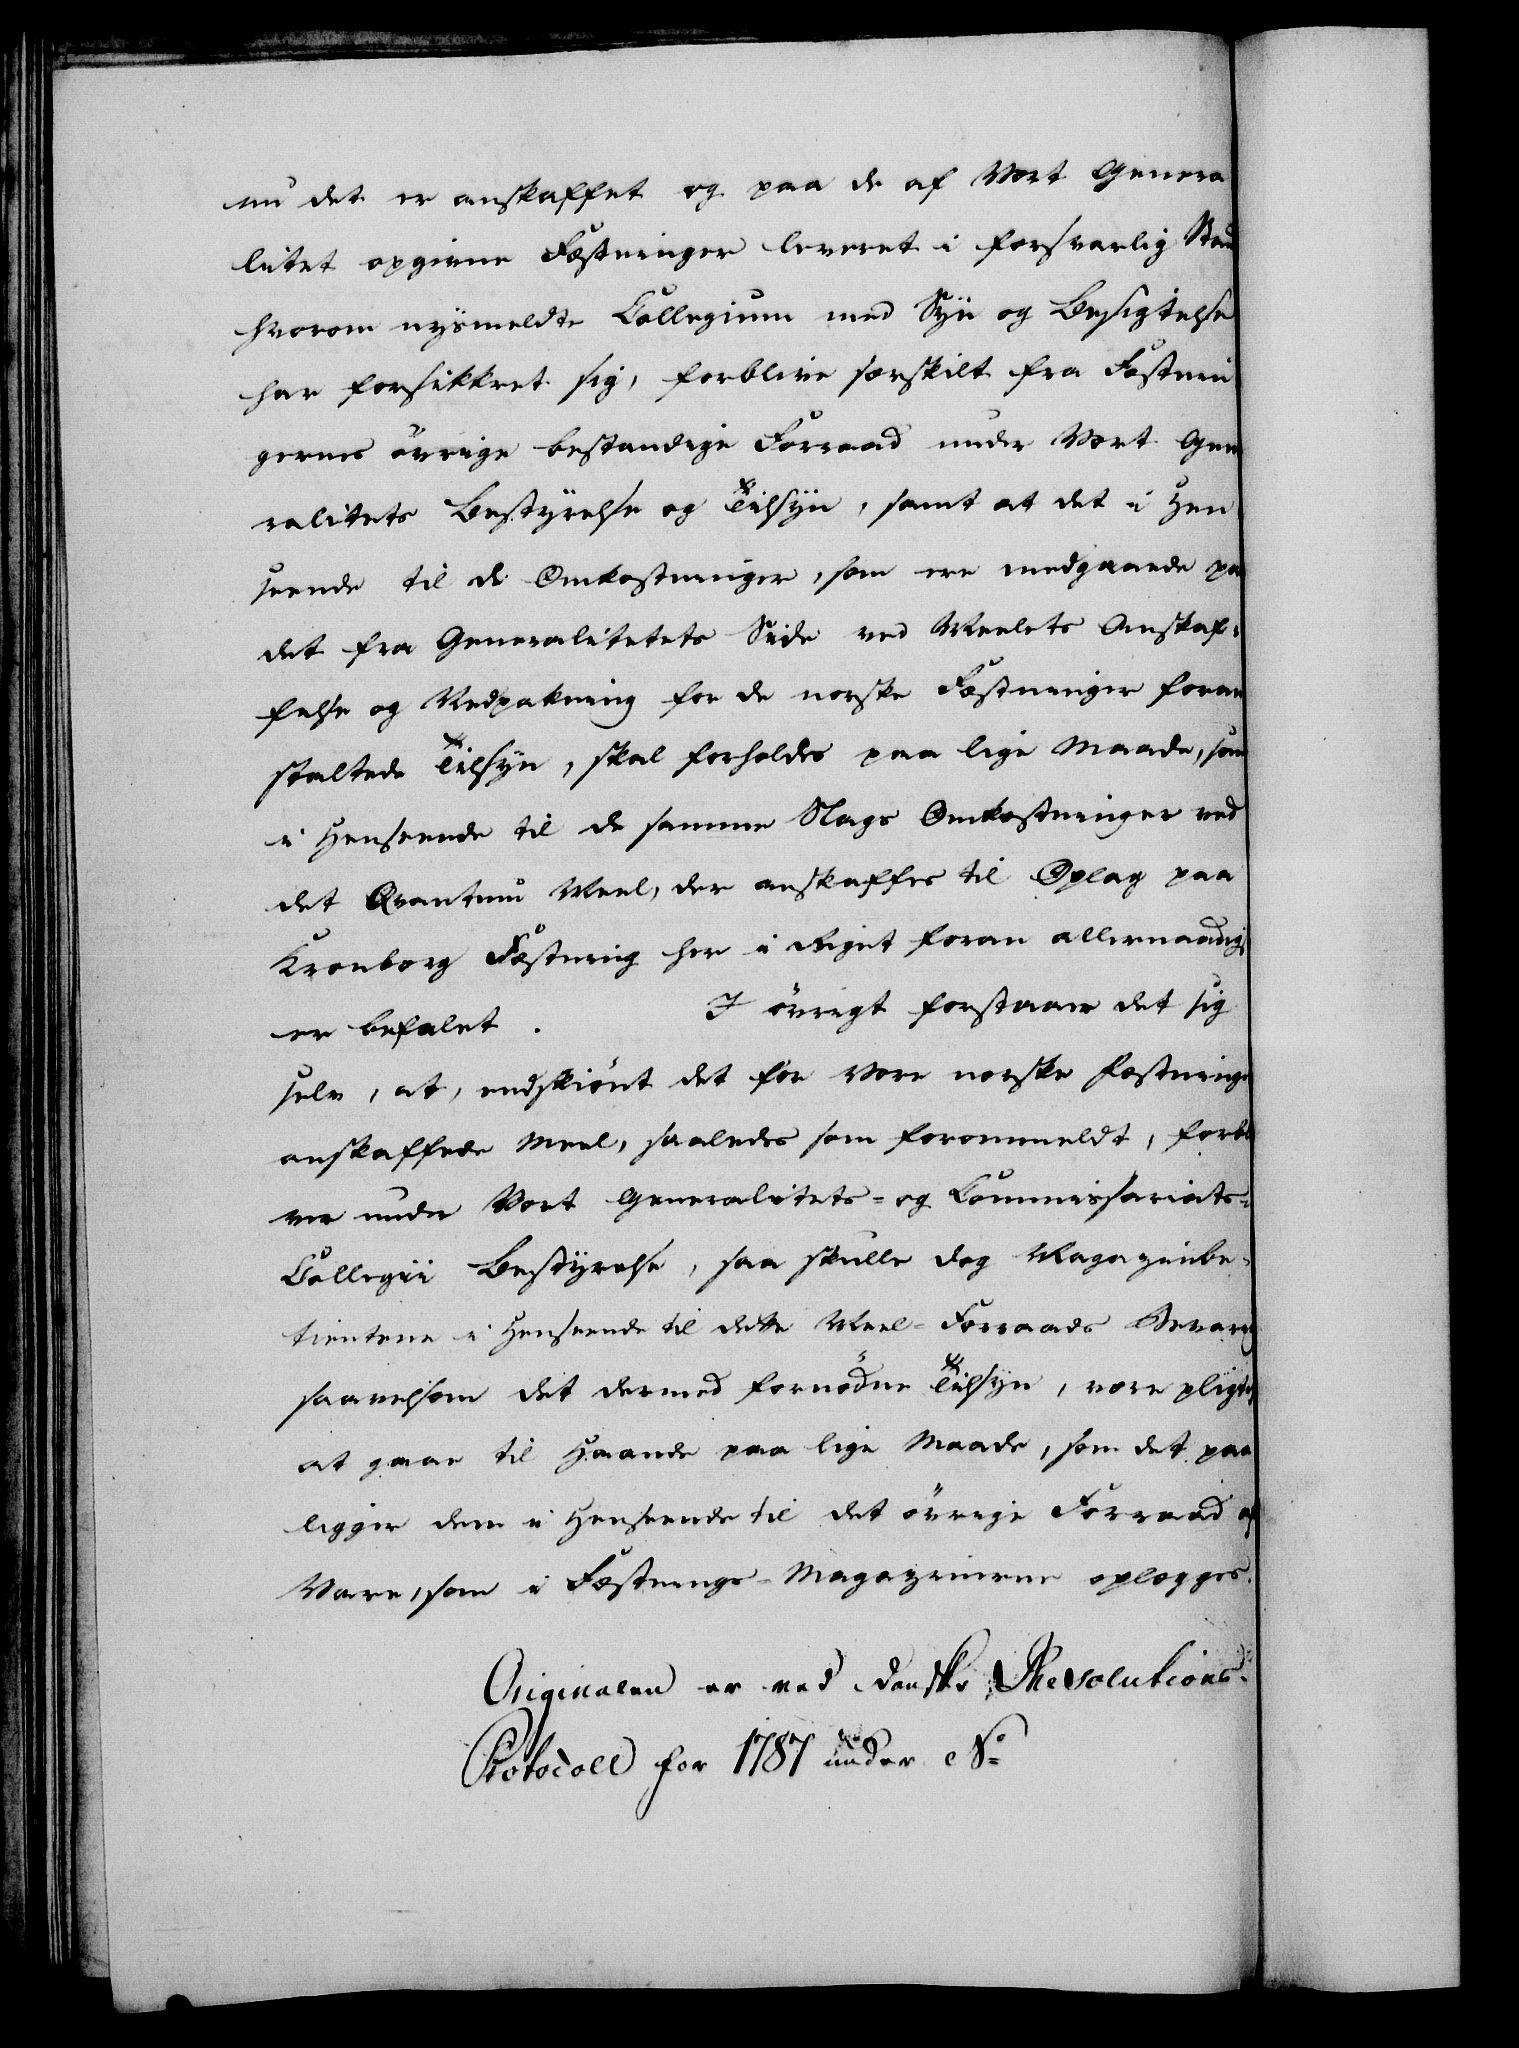 nu det er anskaffet og paa de af Vort Genera
litet opgivne Fæstninger leveret i forsvarlig Stan
hvorom nysmeldte Collegium med Syn og Besigtelse
har forsikkret sig, forblive særskilt fra Fæstnin
gernes övrige bestandige Forraad under Vort Gene
ralitets Bestyrelse og Tilsyn, samt at det i Hen
seende til de Omkostninger, som ere medgaaede paa
det fra Generalitetets Side ved Meelets Anskaf-
felse og Nedpakning for de norske Fæstninger foran
staltede Tilsyn, skal forholdes paa lige Maade, som
i Henseende til de samme Slags Omkostninger ved
det Qvantum Meel, der anskaffes til Oplag paa
Kronborg Fæstning her i Riget foran allernaadigst
er befalet. I övrigt forstaaer det sig
selv, at, endskiönt det for Vore norske Fæstninge
anskaffede Meel, saaledes som forommeldt, forbli
ver under Vort Generalitets- og Commissariats-
Collegii Bestyrelse, saa skulle dog Magazinbe-
tientene i Henseende til dette Meel-Forraads Bevaring
saavelsom det dermed fornödne Tilsyn, være pligtig
at gaae til Haande paa lige Maade, som det paa
ligger dem i Henseende til det övrige Forraad af
Vare, som i Fæstnings-Magazinerne oplægges.
Originalen er ved danske Resolutions-
Protocoll for 1787 under No